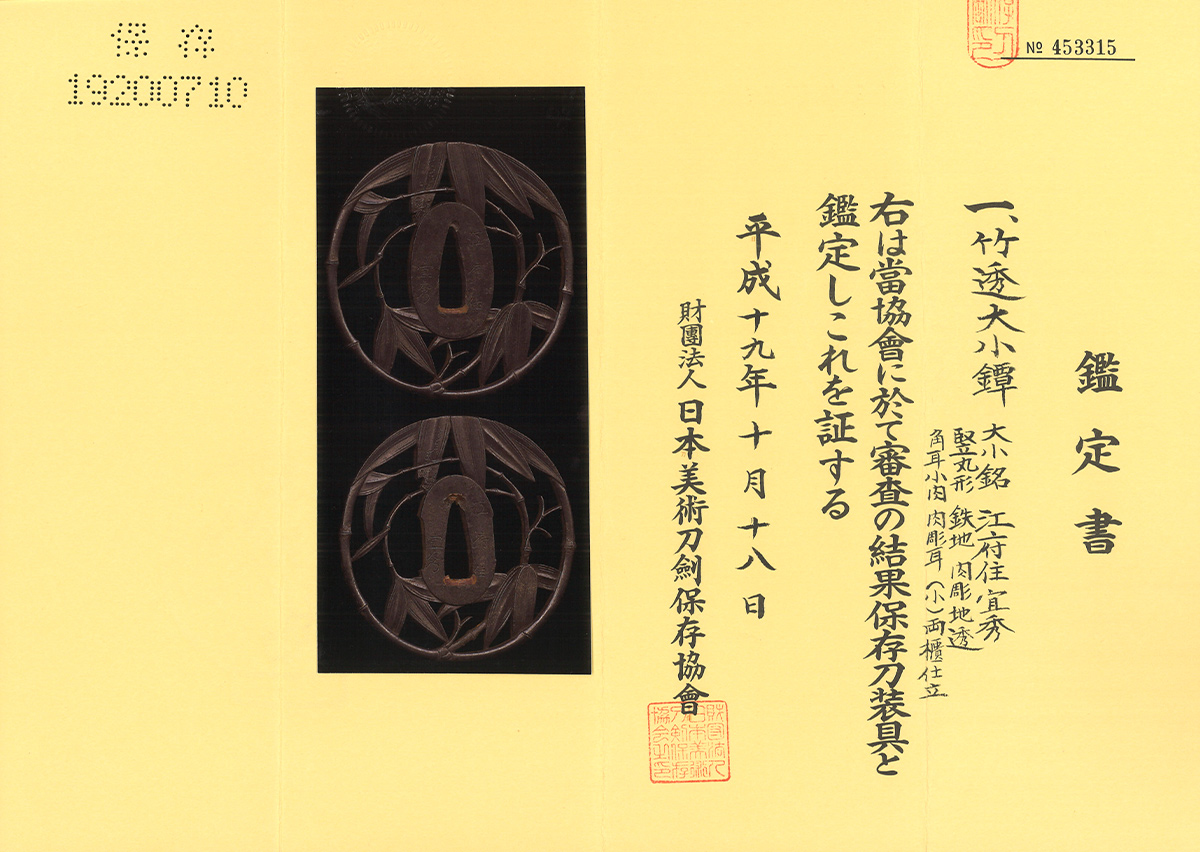 № 453315
鑑定書
一、竹透大小鐔
大小銘 江府住宜秀
竪丸形 鉄地 肉彫地透
角耳小肉 肉彫耳(小)両櫃仕立
右は當協會に於て審査の結果保存刀装具と
鑑定しこれを証する
平成十九年十月十八日
財團法人 日本美術刀劍保存協會
財団法人日本美術刀剣保存協会之印
保存
19200710